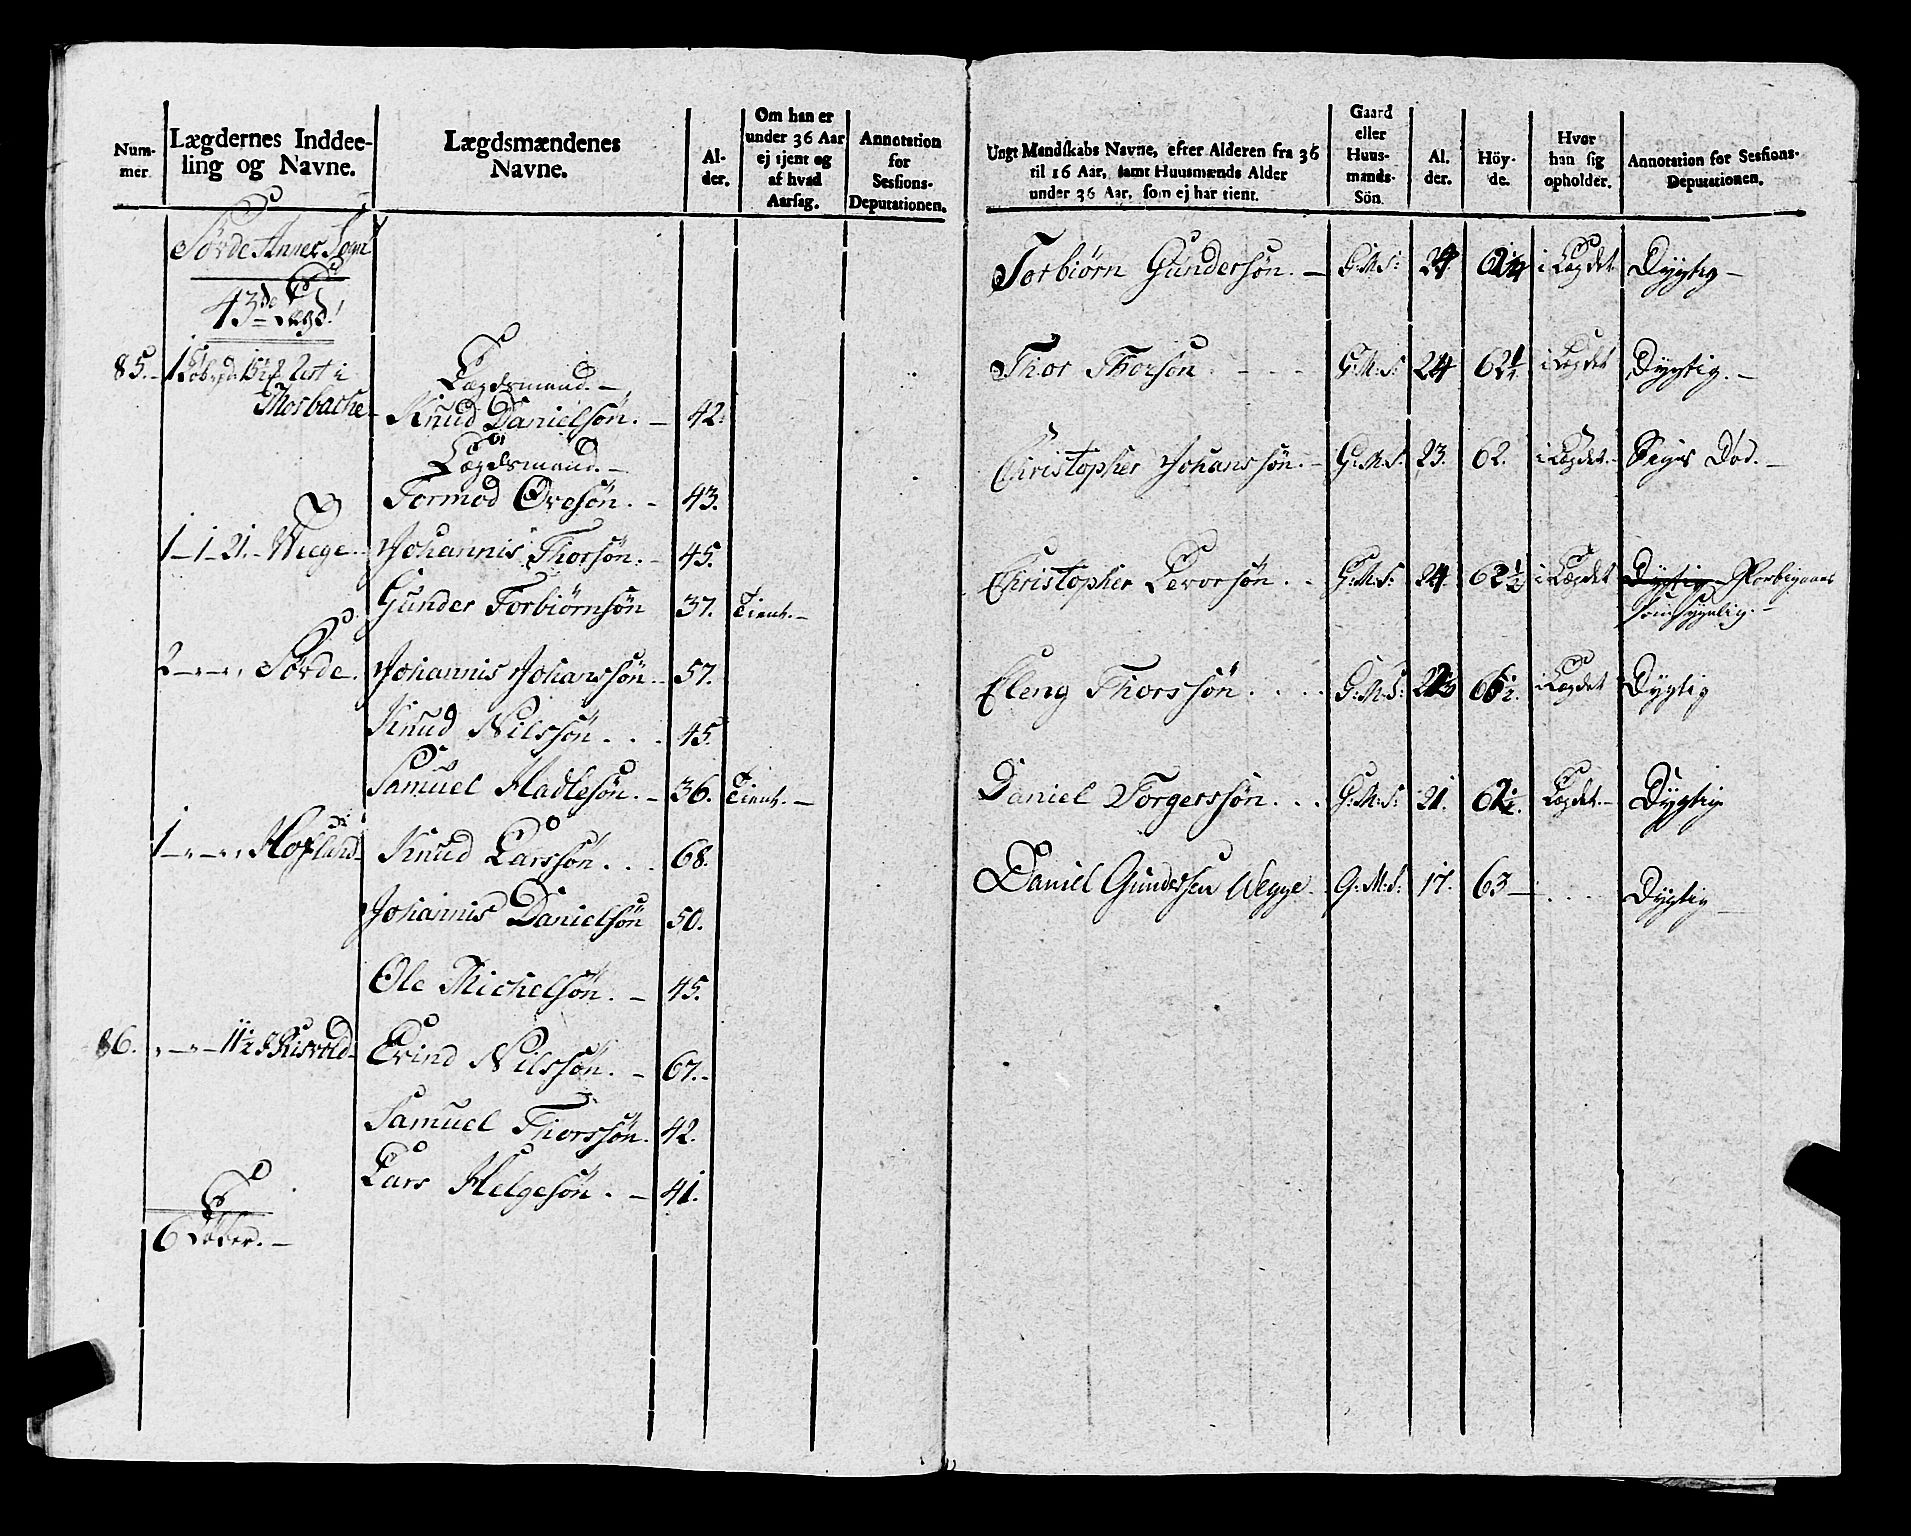 Num-
mer.
Lægdernes Inddee-
ling og Navne.
Lægdsmændenes
Navne.
Al-
der.
Om han er
under 36 Aar
ej tjent og
af hvad
Aarsag.
Annotation
for
Sessions-
Deputationen.
Sørde Annex Sogn
43de Lægd.
85. 1
Thorbache
Lægdsmand. —
Knud Danielsøn. — 42.
Lægdsmand. —
Tormod Ovesøn. — 43.
1 — 1 — 21. — Weege. Johannis Thorsøn. — 45.
Gunder Torbiørnsøn 37. Tient. —
2 — „ — „ Sørde. Johannis Johanssøn. — 57.
Knud Nilssøn . . . 45.
Samuel Madlesøn. — 36. Tient. —
1 — „ — „ Hofland Knud Larssøn. . . 68.
Johannis Danielsøn 50.
Ole Michelsøn. — 45.
86. „ — „ — 11½ Risvold Evind Nilssøn. — 67. —
Samuel Thorssøn. 42.
Lars Helgesøn. — 41.
6 Løber. —
Ungt Mandskabs Navne, efter Alderen fra 36
til 16 Aar, samt Huusmænds Alder
under 36 Aar, som ej har tient.
Gaard
eller
Huus-
mands-
Sön.
Al.
der.
Höy-
de.
Hvor
han sig
opholder.
Annotation for Sessions-
Deputationen.
Torbiørn Gundersøn. — G: M: S: 24 i Lægdet Dygtig —
Thor Thorsøn . - - - G: M: S: 24 i Lægdet Dygtig. —
Christopher Johanssøn. — G: M: S. 23. 62. i Lægdet. — Siges Død. —
Christopher Levorsøn . . G: M: S: 24 62½ i Lægdet Dygtig Forbigaaes
som sygelig. —
Eleng Thorssøn . . . . G: M: S: i Lægdet Dygtig
Daniel Torgerssøn. . . G: M: S: 21. 62½. Lægdet. — Dygtig
Daniel Gundersen Wegge. G. M: S: 17. 63 — . . . . Dygtig —